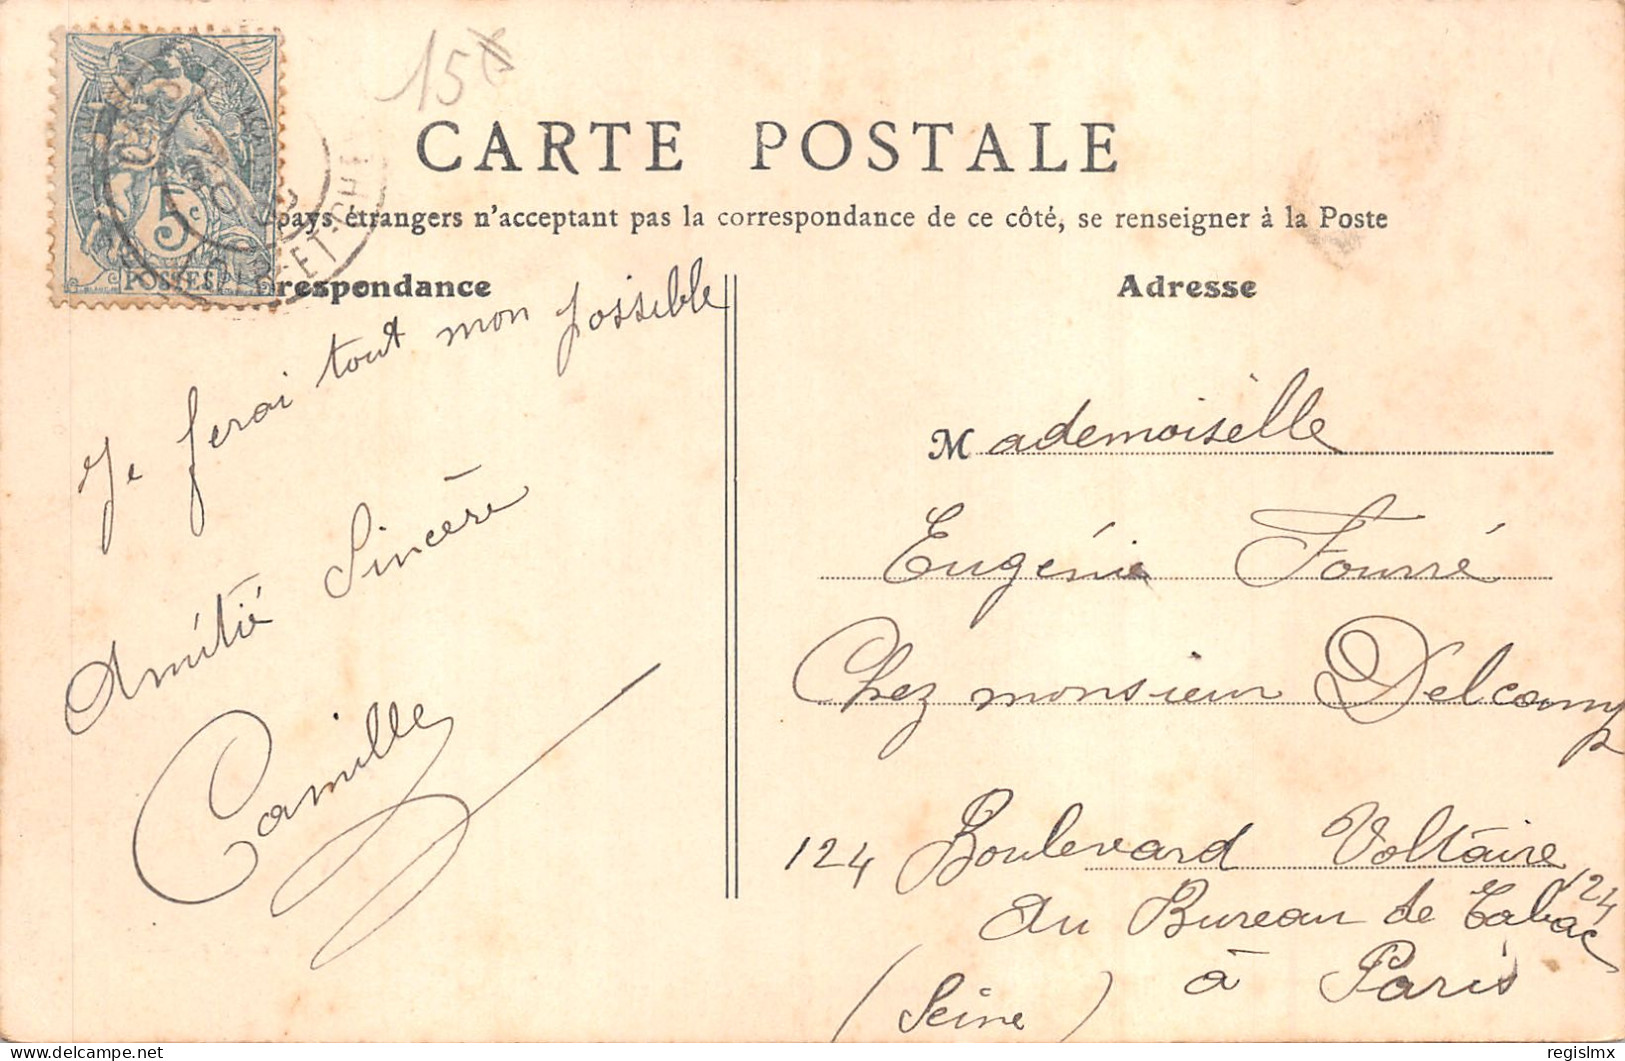 15€
CARTE POSTALE
pays étrangers n'acceptant pas la correspondance de ce côté, se renseigner à la Poste
respondance
Adresse
5c
POSTES
LOIR-ET-CHER
Je ferai tout mon possible
Amitié Sincère
Camille
Mademoiselle
Eugénie Fourré
Chez monsieur Delcamp
124 Boulevard Voltaire 124
Au Bureau de Tabac
(Seine) à Paris
delcampe.net
regislmx